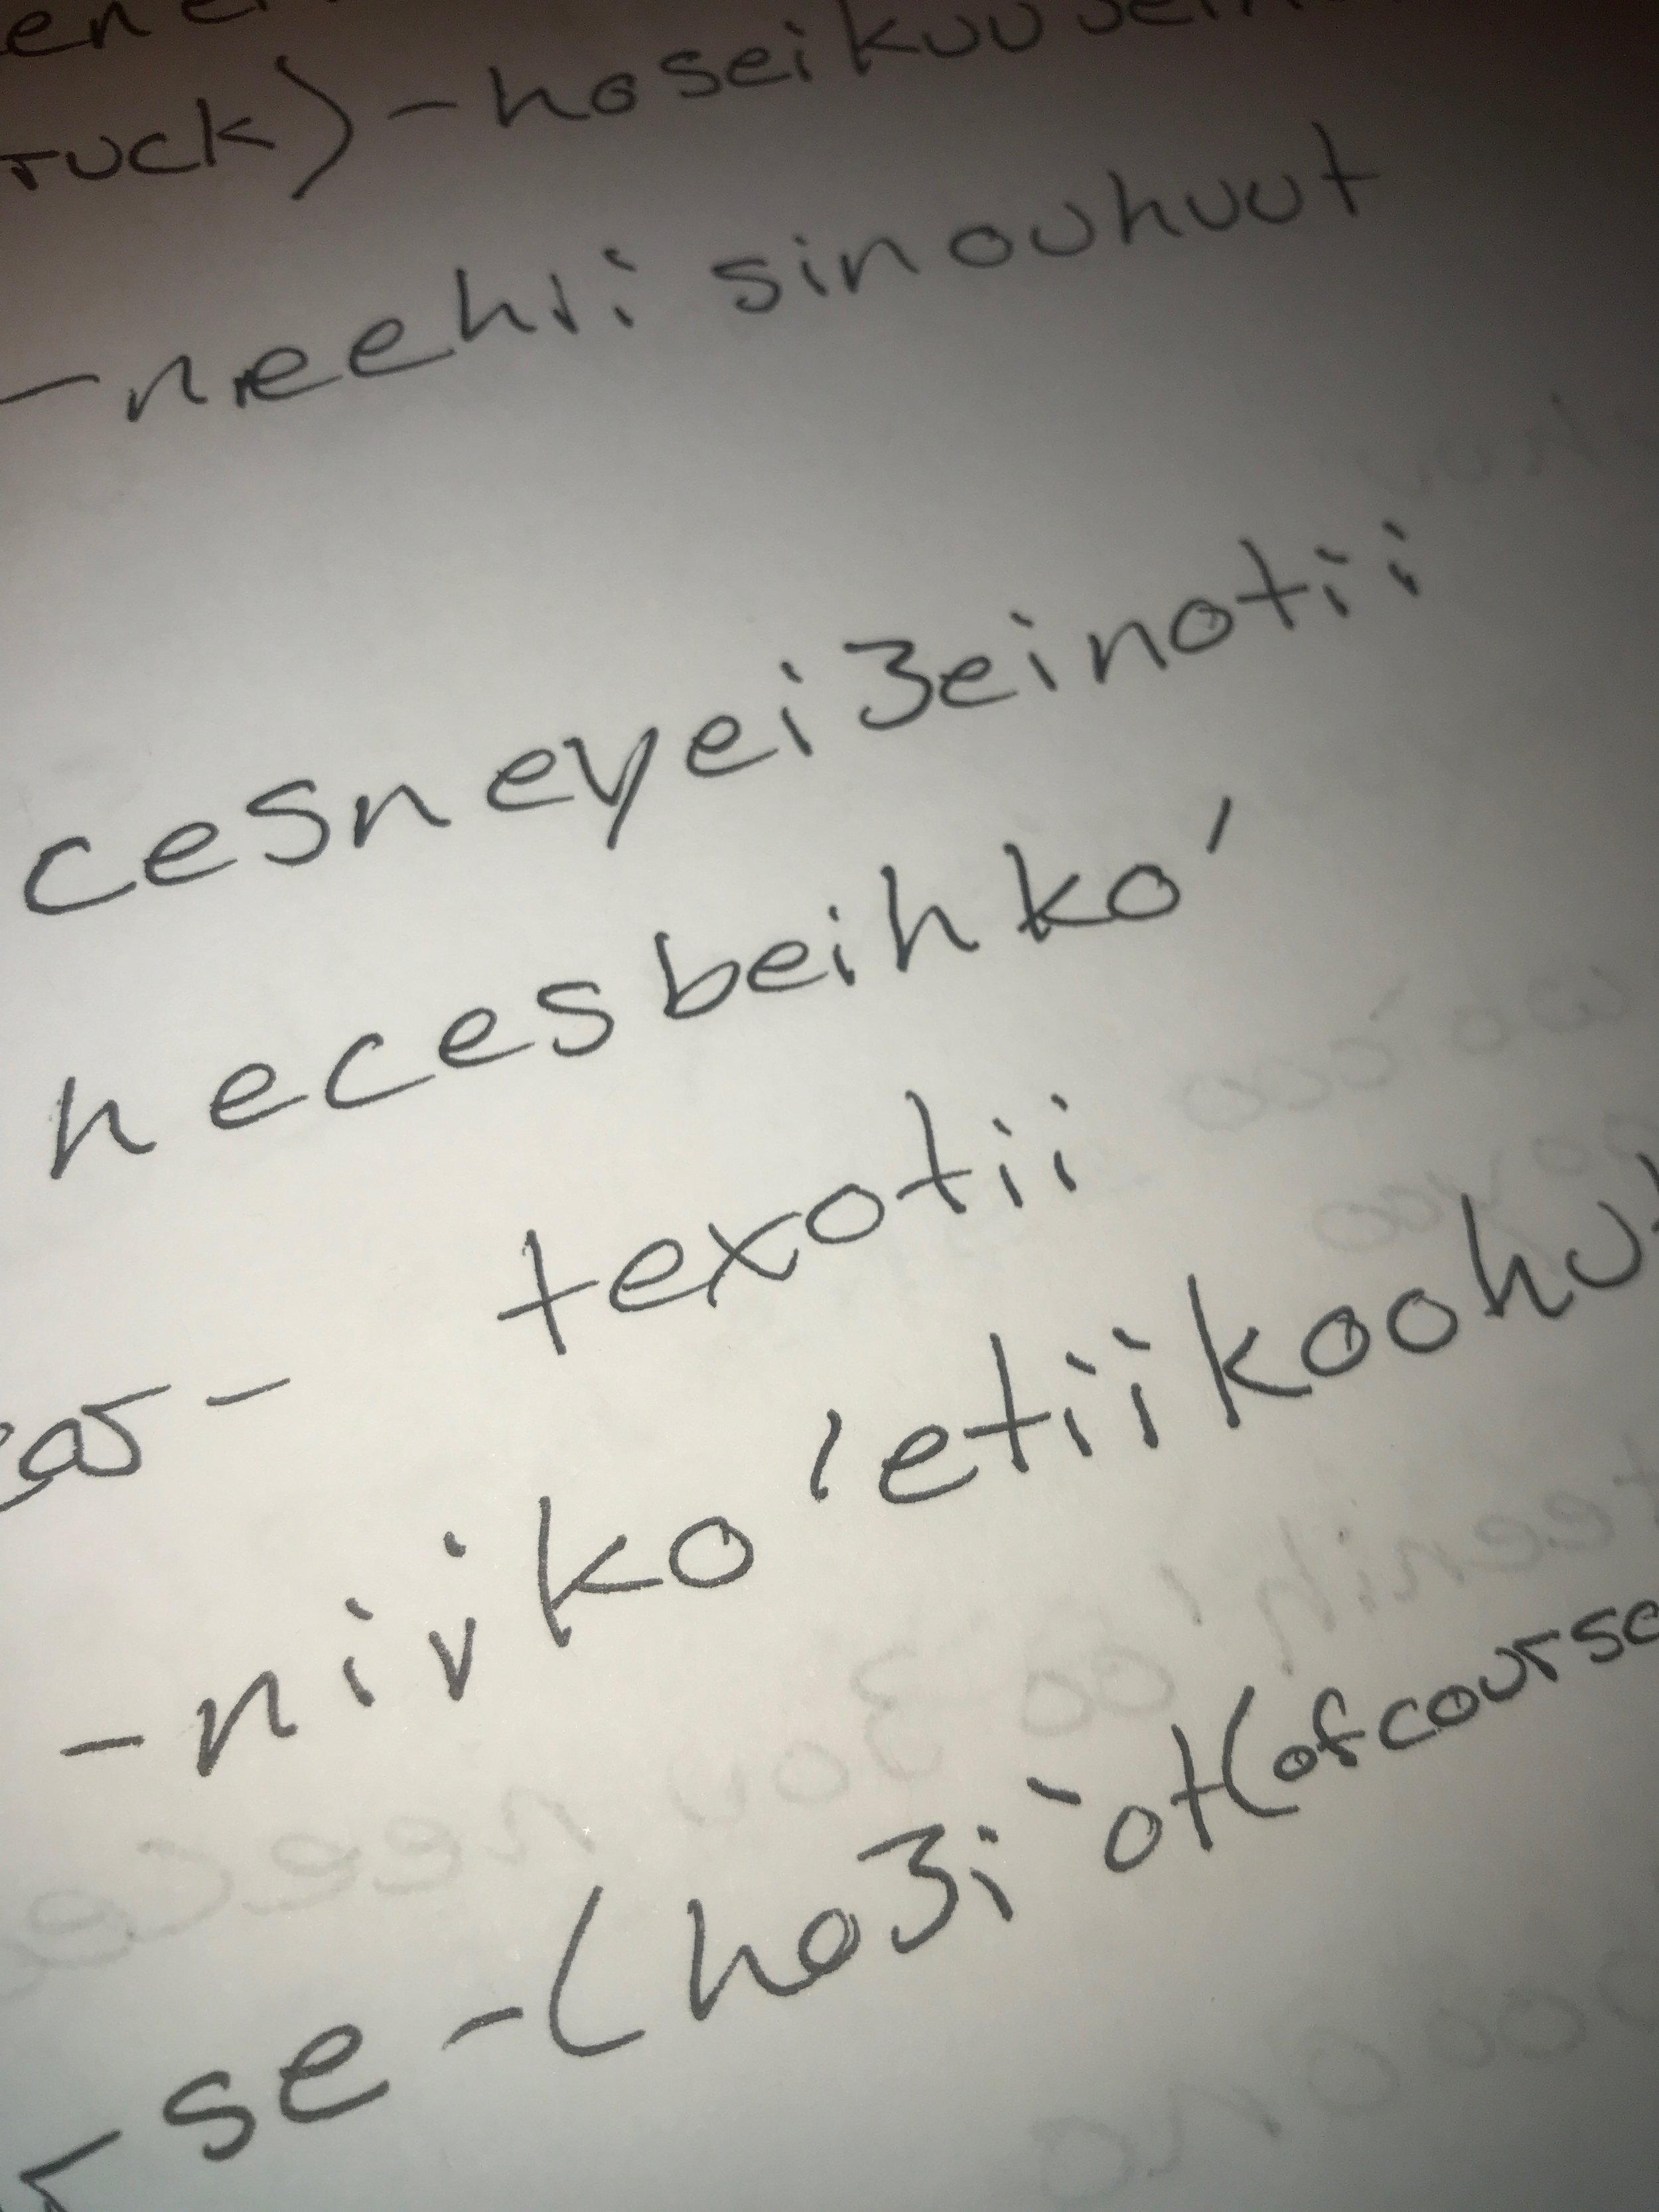 ruck) - hoseikuu
- neehii sinouhuut
cesneyei3einotii
hecesbeihko'
texotii
- niiko'etiikoohu
-se -(ho3i'ot(of course